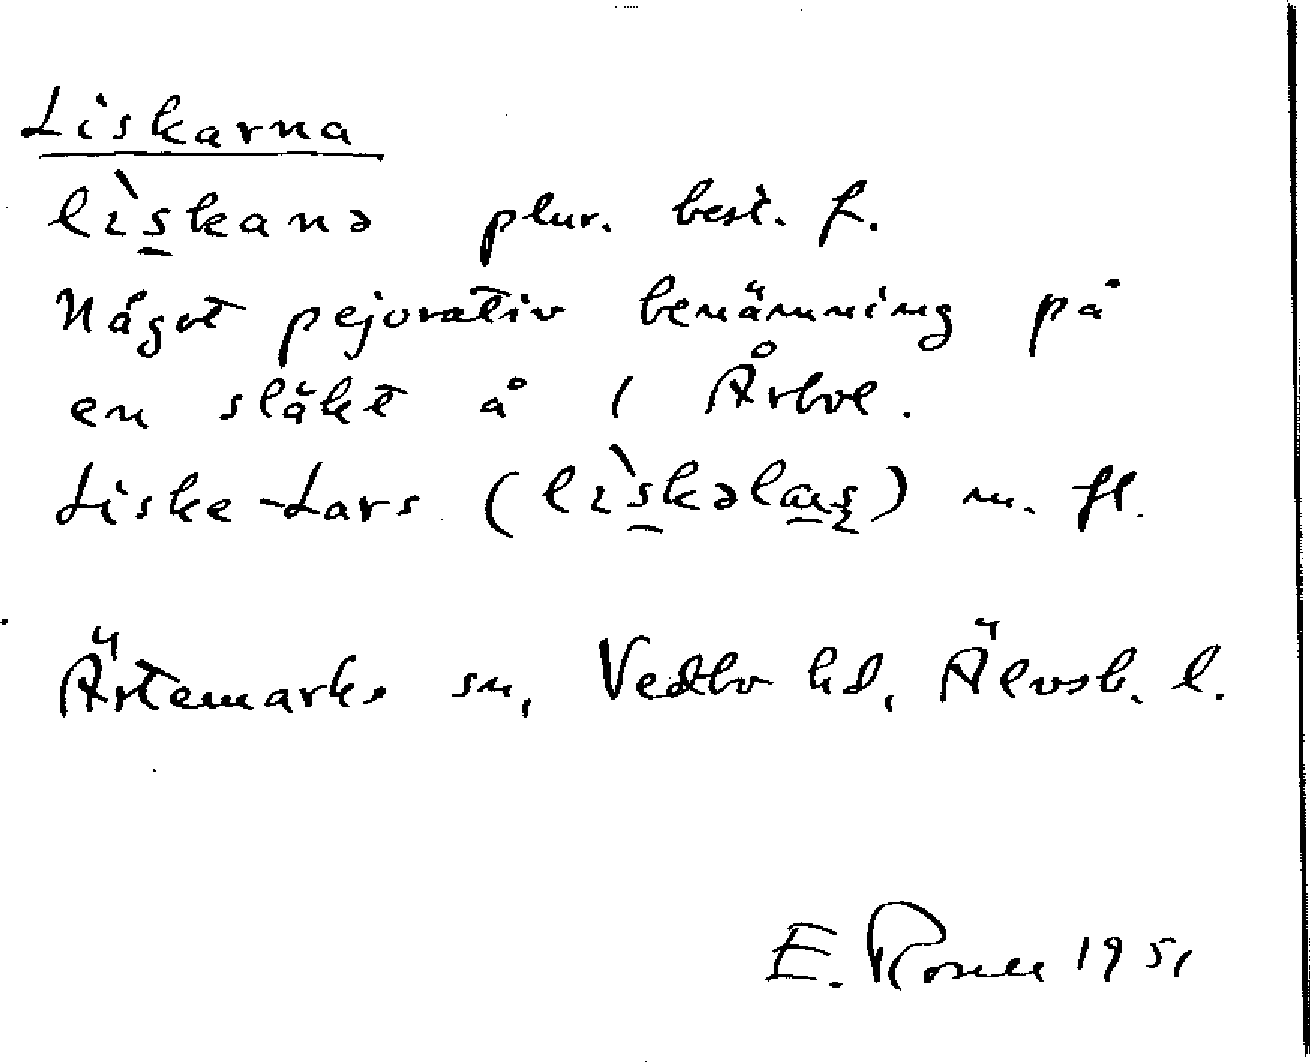 Liskarna
lìskanə plur. best. f.
Något pejorativ benämning på
en släkt å 1 Årbol.
Liske-Lars (lìskəlas) m. fl.
Ärtemarks sn, Vedbo hd, Älvsb. l.
E. 1951